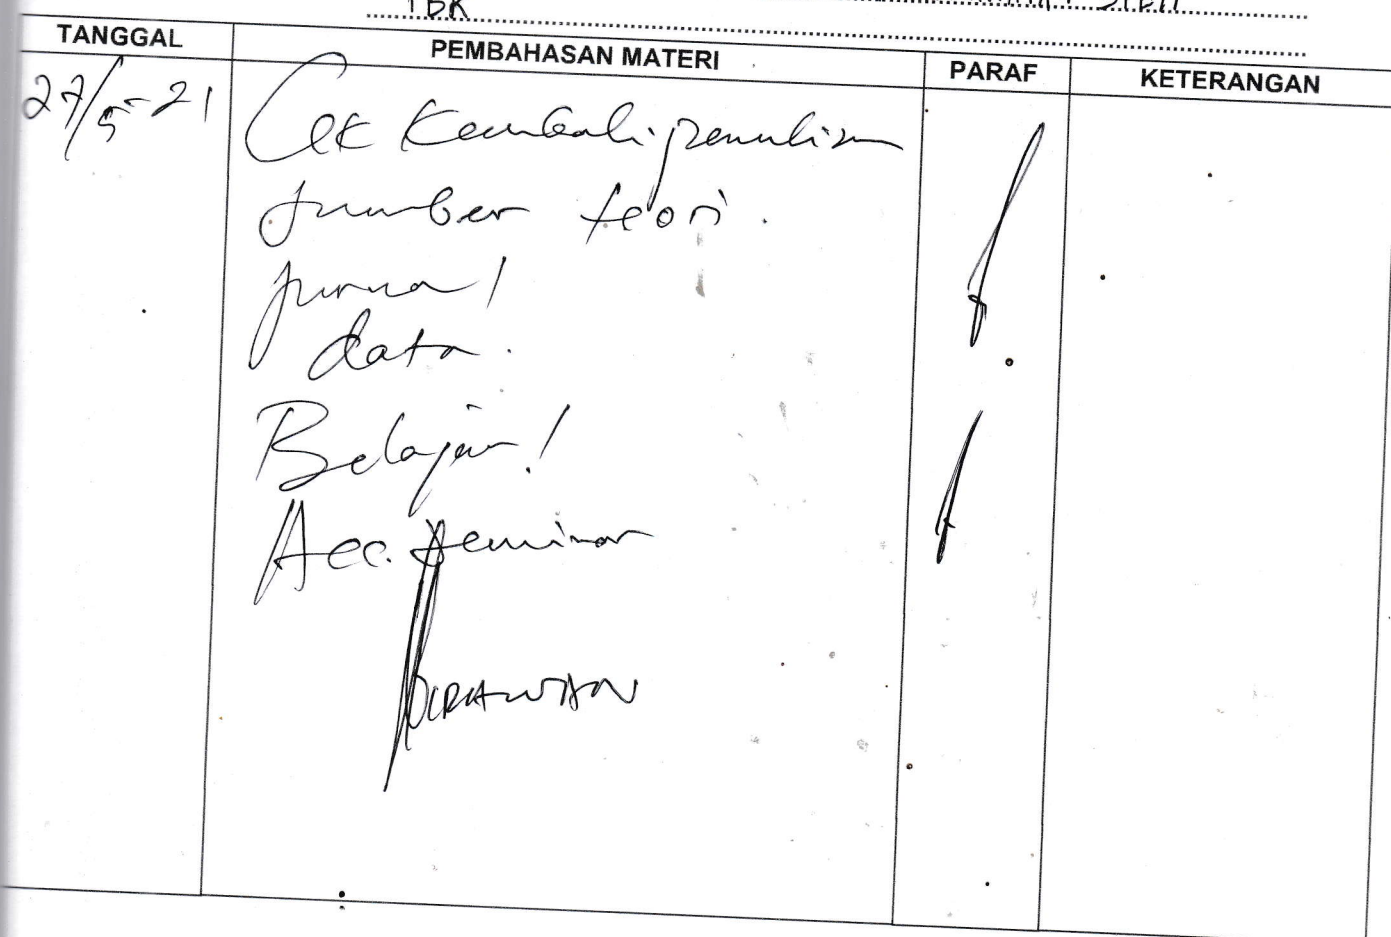 TBK
TANGGAL PEMBAHASAN MATERI PARAF KETERANGAN
27/5-21 Cek Kembali penulisan
sumber teori.
jurnal
data.
Belajar!
Acc. Seminar